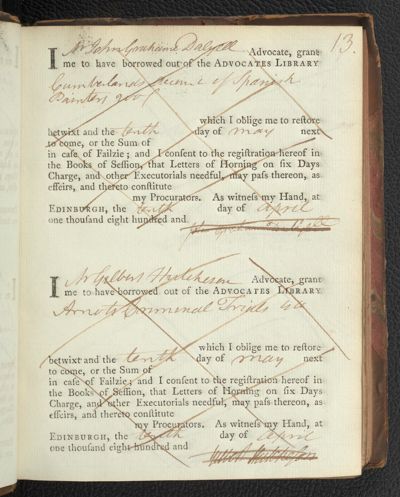 13.
I Mr John Grahame Dalyell Advocate, grant
me to have borrowed out of the ADVOCATES LIBRARY
Cumberlands of Spanish
Painters 2 vol
which I oblige me to reſtore
betwixt and the tenth day of may next
to come, or the Sum of
in caſe of Failzie; and I conſent to the regiſtration hereof in
the Books of Seſſion, that Letters of Horning on ſix Days
Charge, and other Executorials needful, may paſs thereon, as
effeirs, and thereto conſtitute
my Procurators. As witneſs my Hand, at
EDINBURGH, the tenth day of april
one thouſand eight hundred and
John Graham Dalyell
I Mr Gilbert Hutcheson Advocate, grant
me to have borrowed out of the ADVOCATES LIBRARY
Arnots Criminal Trials 4to
which I oblige me to reſtore
betwixt and the tenth day of may next
to come, or the Sum of
in caſe of Failzie; and I conſent to the regiſtration hereof in
the Books of Seſſion, that Letters of Horning on ſix Days
Charge, and other Executorials needful, may paſs thereon, as
effeirs, and thereto conſtitute
my Procurators. As witneſs my Hand, at
EDINBURGH, the tenth day of april
one thouſand eight hundred and
Hutcheson